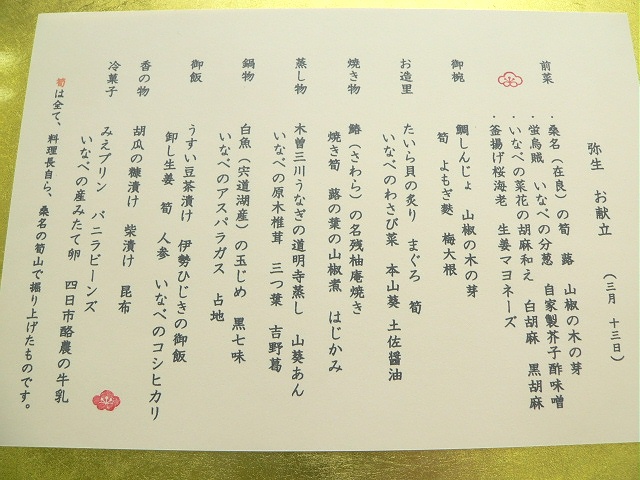 弥生 お献立 (三月 十三日)
前菜 ・桑名(在良)の筍 蕗 山椒の木の芽
・蛍烏賊 いなべの分葱 自家製芥子酢味噌
・いなべの菜花の胡麻和え 白胡麻 黒胡麻
・釜揚げ桜海老 生姜マヨネーズ
御椀 鯛しんじょ 山椒の木の芽
筍 よもぎ麩 梅大根
お造里 たいら貝の炙り まぐろ 筍
いなべのわさび菜 本山葵 土佐醤油
焼き物 鰆(さわら)の名残柚庵焼き
焼き筍 蕗の葉の山椒煮 はじかみ
蒸し物 木曽三川うなぎの道明寺蒸し 山葵あん
いなべの原木椎茸 三つ葉 吉野葛
鍋物 白魚(宍道湖産)の玉じめ 黒七味
いなべのアスパラガス 占地
御飯 うすい豆茶漬け 伊勢ひじきの御飯
卸し生姜 筍 人参 いなべのコシヒカリ
香の物 胡瓜の糠漬け 柴漬け 昆布
冷菓子 みえプリン バニラビーンズ
いなべの産みたて卵 四日市酪農の牛乳
筍は全て、料理長自ら、桑名の筍山で掘り上げたものです。